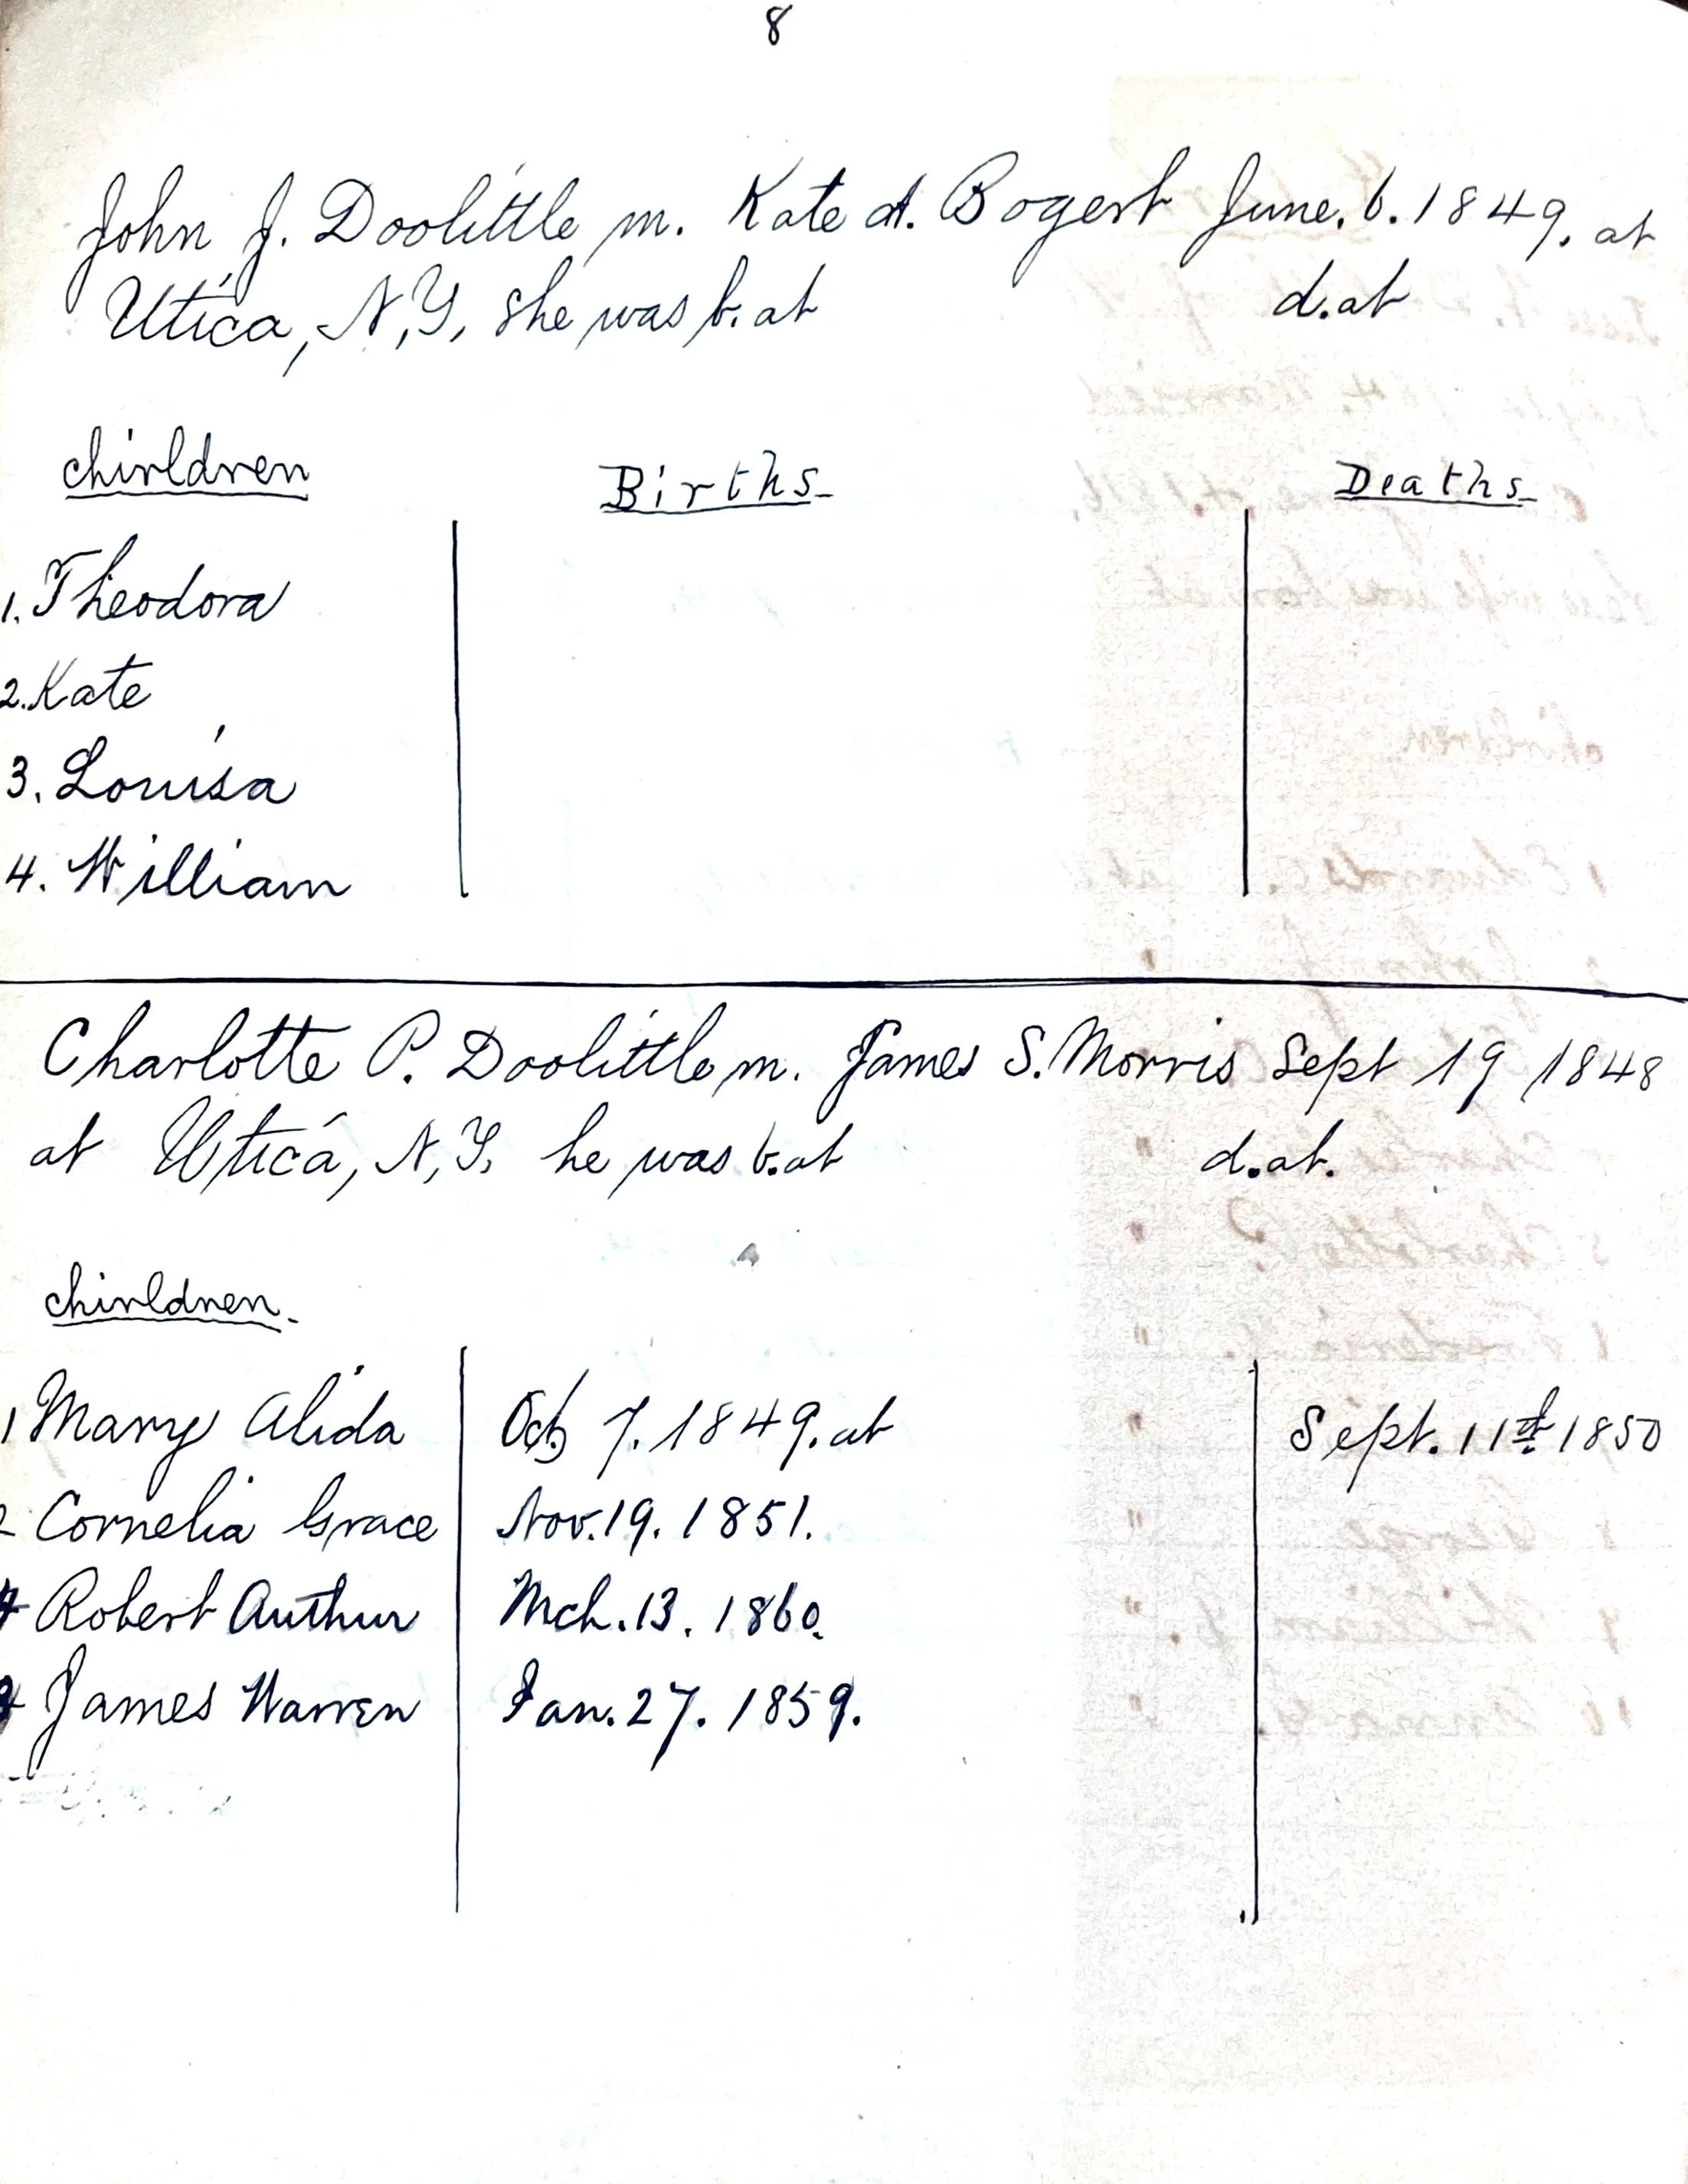 8
John J. Doolittle m. Kate A. Bogert June. 6. 1849. at
Utica, N.Y, she was b. at d. at
chirldren Births Deaths
1. Theodora
2. Kate
3. Louisa
4. William
Charlotte P. Doolittle m. James S. Morris Sept 19 1848
at Utica, N.Y. he was b. at d. at.
chirldren.
1 Mary Alida Oct 7. 1849. at Sept. 11th 1850
2 Cornelia Grace Nov. 19. 1851.
4 Robert Authur Mch. 13. 1860.
3 James Warren Jan. 27. 1859.